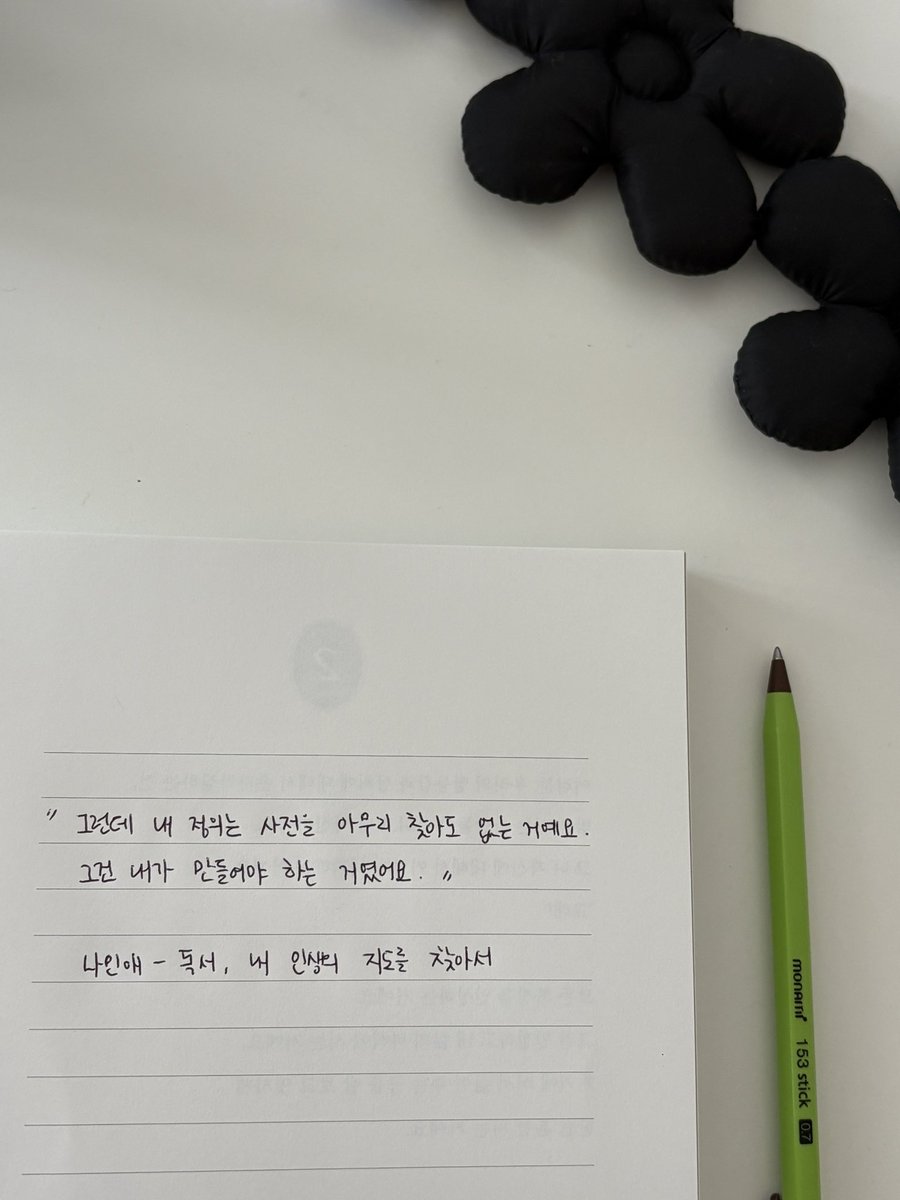 2
" 그런데 내 정의는 사전을 아무리 찾아도 없는 거예요.
그건 내가 만들어야 하는 거였어요. "
나인애 - 독서, 내 인생의 지도를 찾아서
monami 153 stick 0.7